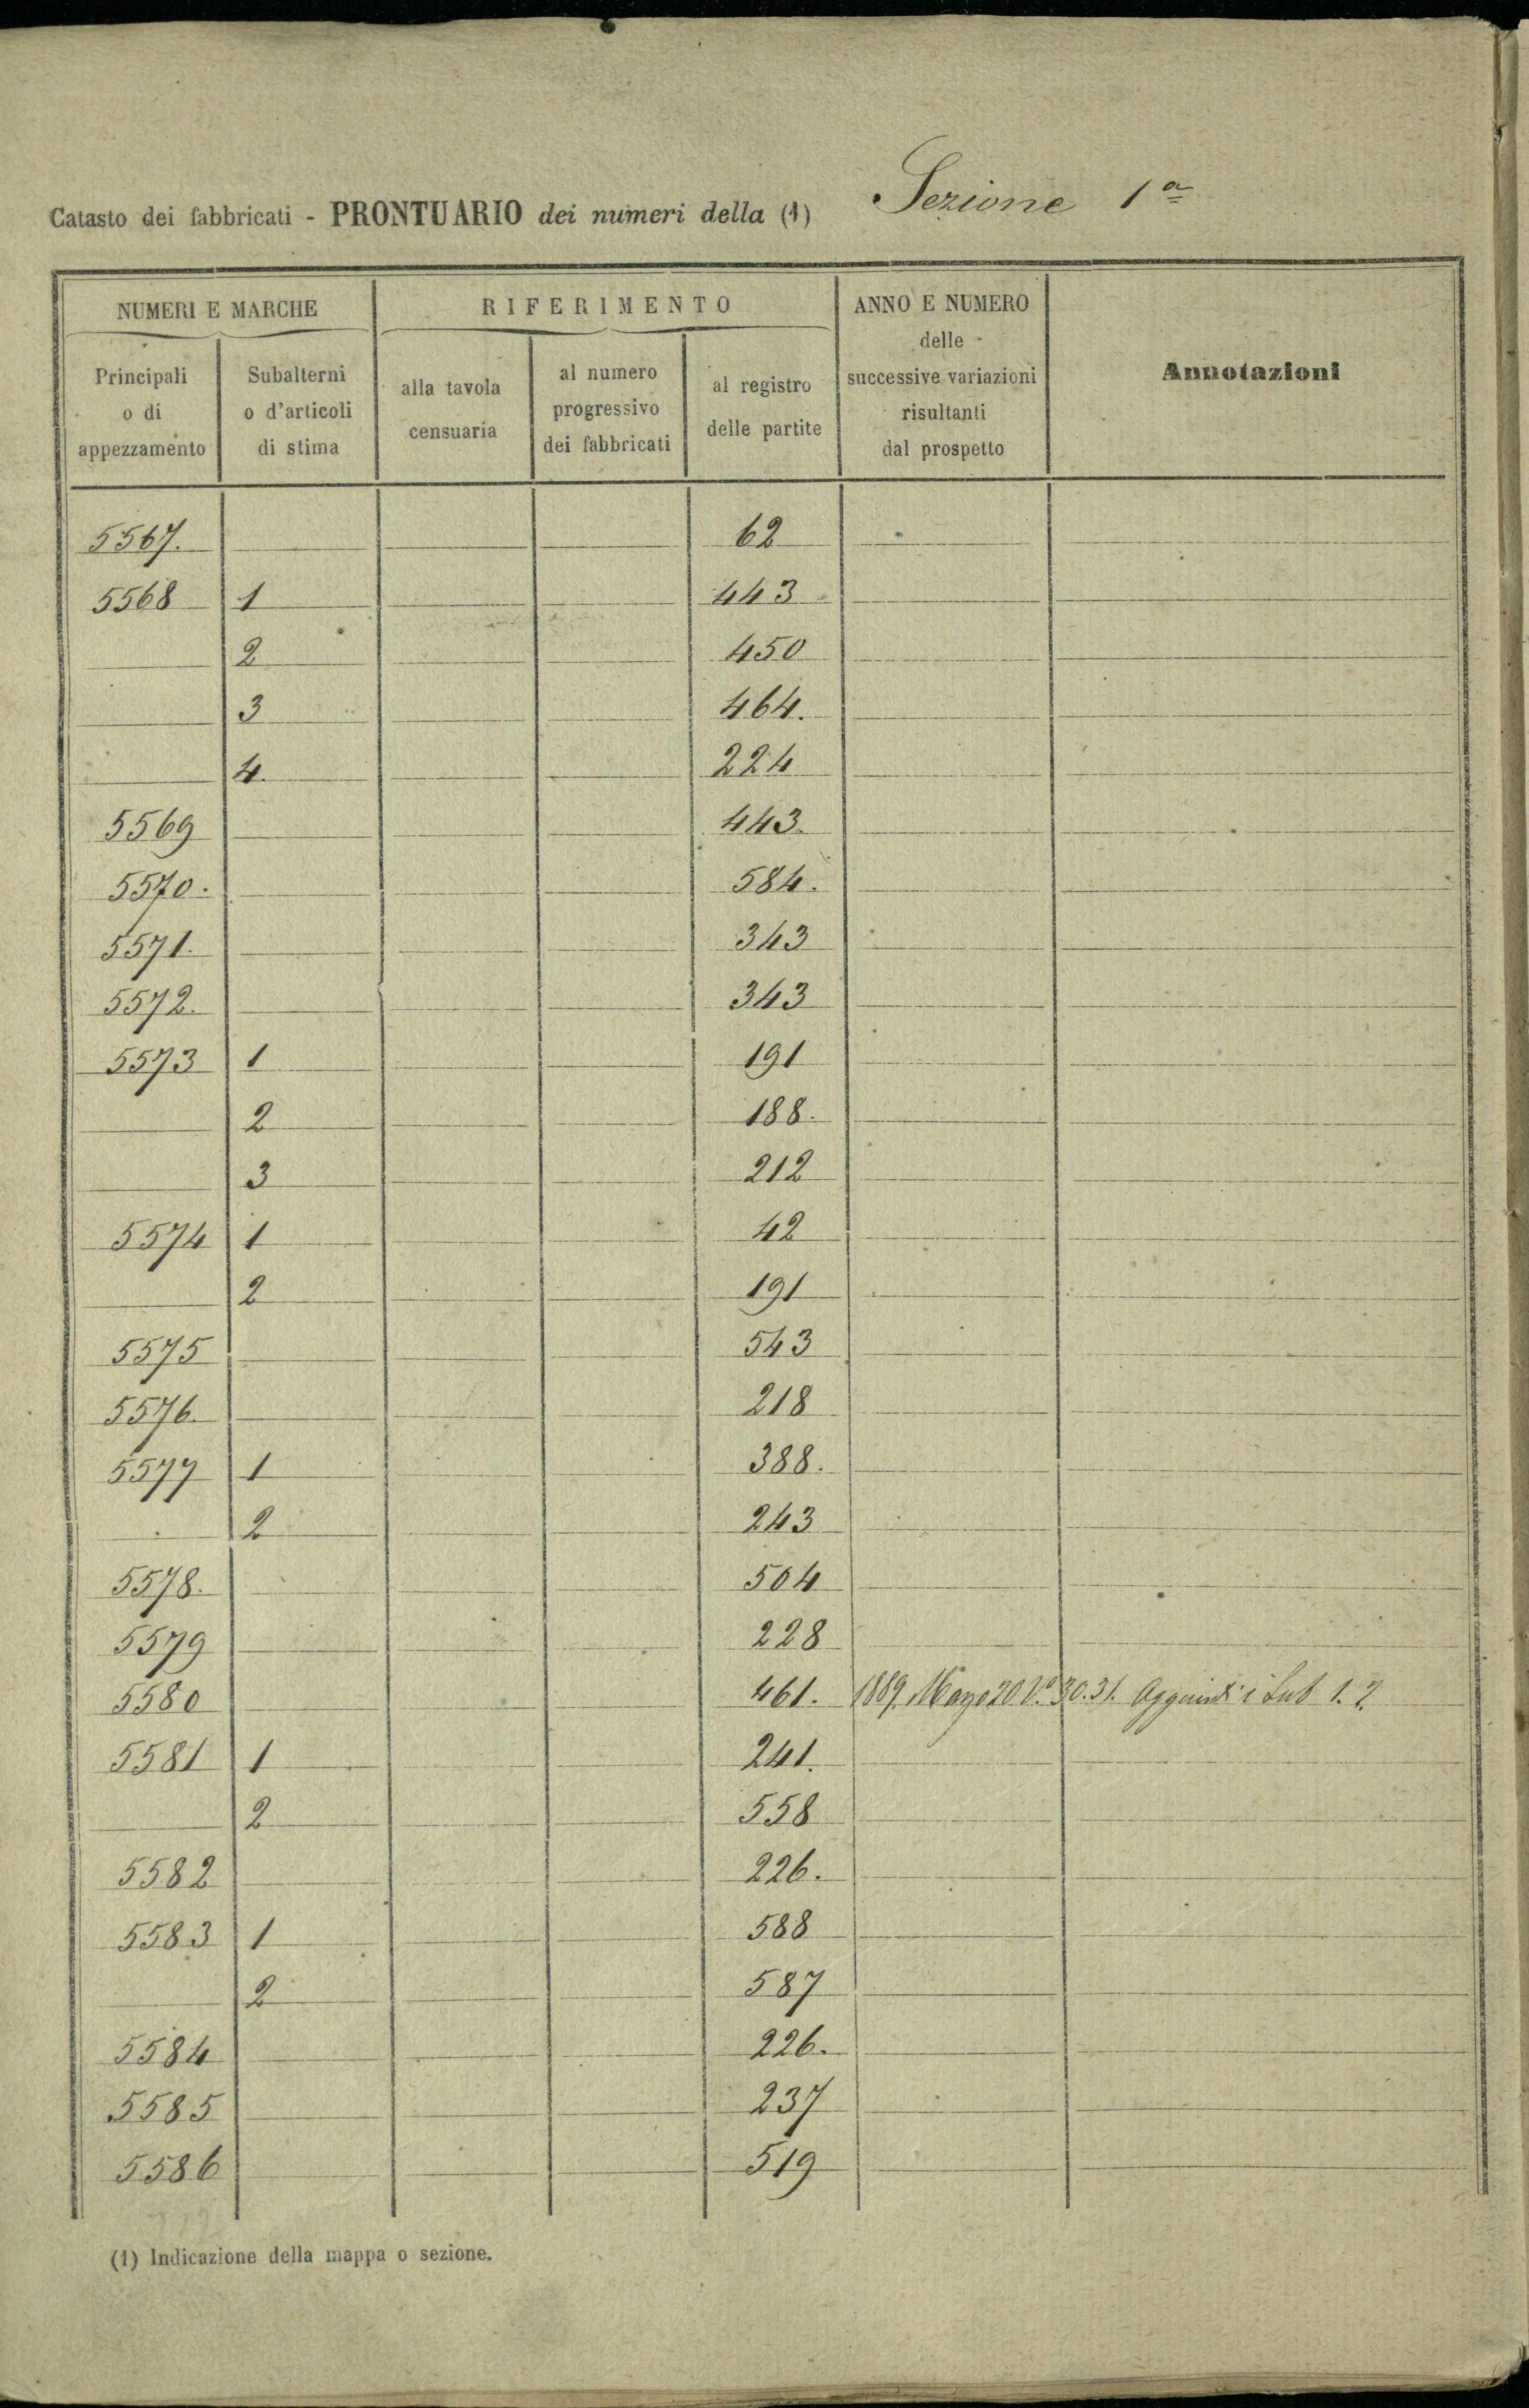 Catasto dei fabbricati - PRONTUARIO dei numeri della (1) Sezione 1a
NUMERI E MARCHE
RIFERIMENTO
ANNO E NUMERO
delle
successive variazioni
risultanti
dal prospetto
Annotazioni
Principali
o di
appezzamento
Subalterni
o d'articoli
di stima
alla tavola
censuaria
al numero
progressivo
dei fabbricati
al registro
delle partite
5567. 62
5568 1 443
2 450
3 464.
4. 224
5569 443.
5570. 584.
5571. 343
5572. 343
5573 1 191
2 188.
3 212
5574 1 42
2 191
5575 543
5576. 218
5577 1 388.
2 243
5578. 504
5579 228
5580 461. 1889. Marzo 20 30.31. Aggiunti i Sub 1. 2.
5581 1 241.
2 558
5582 226.
5583 1 588
2 587
5584 226.
5585 237
5586 519
(1) Indicazione della mappa o sezione.